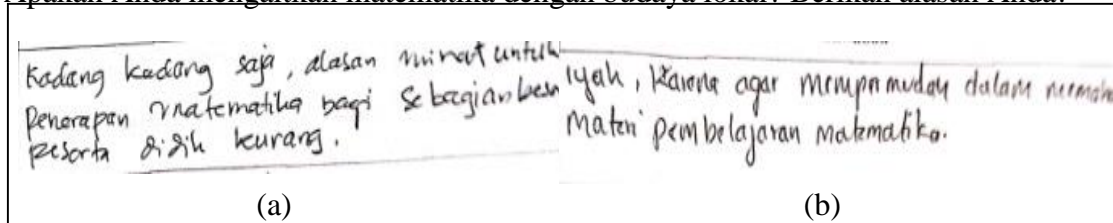 Apakah Anda mengaitkan matematika dengan budaya lokal? Berikan alasan Anda!
Kadang kadang saja, alasan minat untuk
Penerapan matematika bagi sebagian besa
peserta didik kurang.
(a)
iyah, Karena agar mempermudah dalam memah
Materi pembelajaran matematika.
(b)